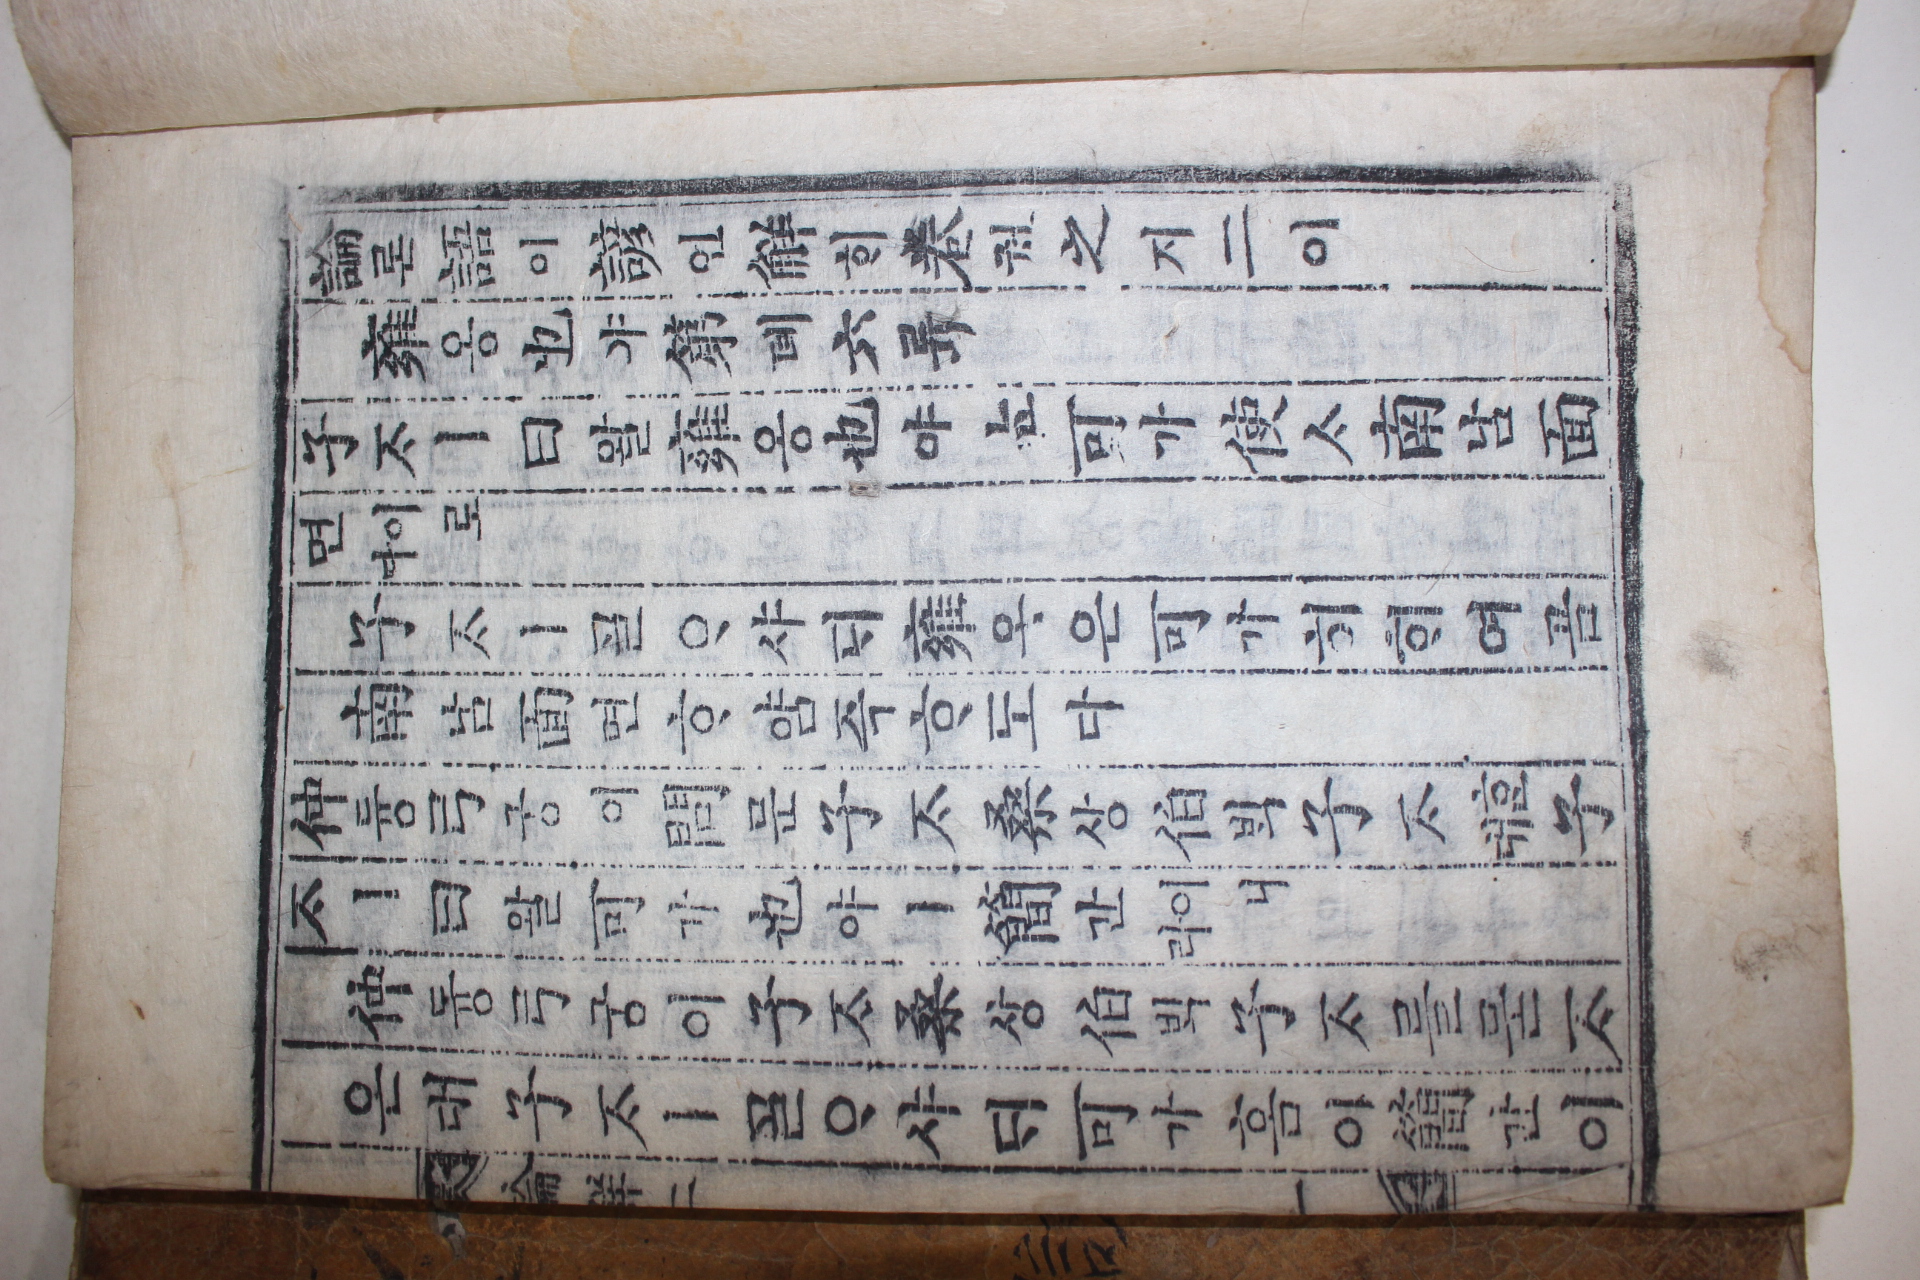 論론語어諺언解ᄒᆡ卷권之지二이
雍옹也야第뎨六륙
子ᄌᆞㅣ曰왈雍옹也야ᄂᆞᆫ可가使ᄉᆞ南남面
면이로다
子ᄌᆞㅣᄀᆞᆯᄋᆞ샤ᄃᆡ雍옹은可가히ᄒᆡ여곰
南남面면ᄒᆞ얌즉ᄒᆞ도다
仲듕弓궁이問문子ᄌᆞ桑상伯ᄇᆡᆨ子ᄌᆞᄒᆞᆫ대子
ᄌᆞㅣ曰왈可가也야ㅣ簡간이니라
仲듕弓궁이子ᄌᆞ桑상伯ᄇᆡᆨ子ᄌᆞ를묻ᄌᆞ
온대子ᄌᆞㅣᄀᆞᆯᄋᆞ샤ᄃᆡ可가홈이簡간이
論解二 一